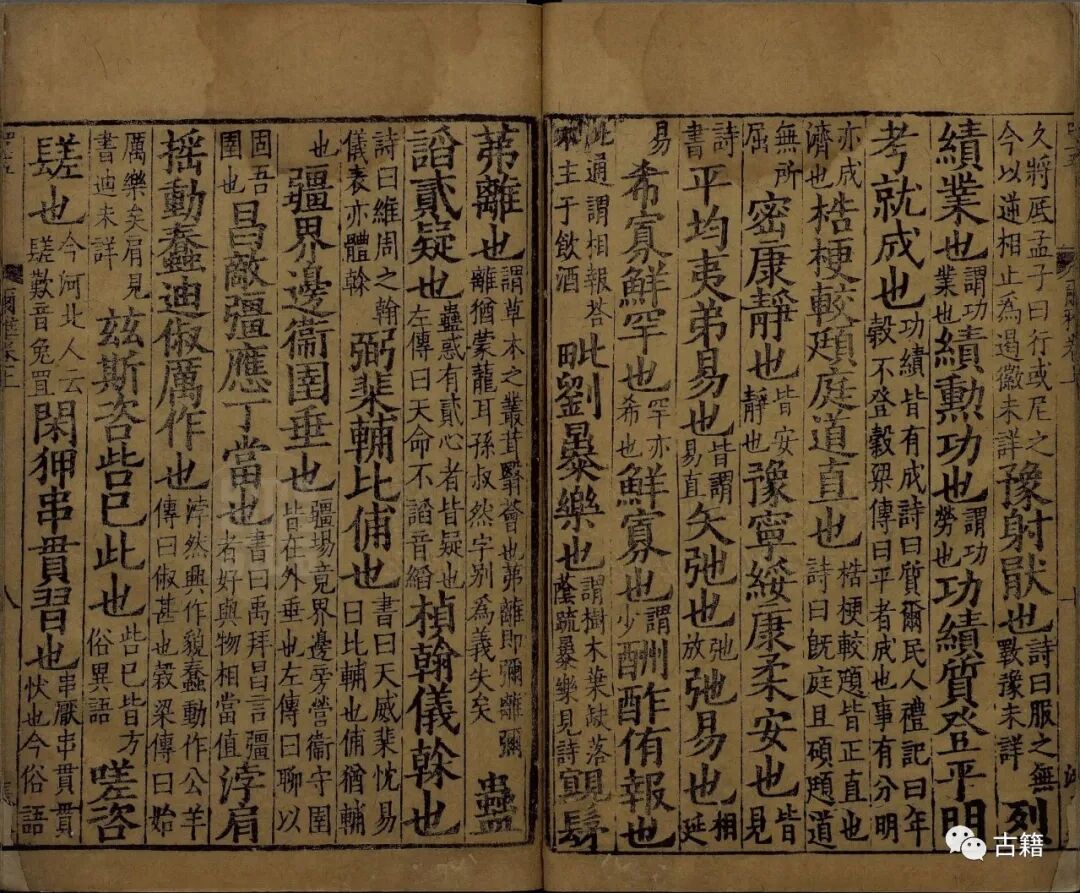 久將底孟子曰行或尼之今以逆相止為遏徽未詳豫射厭也詩曰服之無斁豫未詳列
績業也謂功業也績勳功也謂功勞也功績質登平明
考就成也功績皆有成詩曰質爾民人禮記曰年穀不登穀梁傳曰平者成也事有分明
亦成濟也梏梗較頲庭道直也梏梗較頲皆正直也詩曰既庭且碩頲道
無所屈密康靜也皆安靜也豫寧綏康柔安也皆見
詩書平均夷弟易也皆謂易直矢弛也弛放弛易也相延
易希寡鮮罕也罕亦希也鮮寡也謂少酬酢侑報也
此通謂相報荅不主于飲酒毗劉暴樂也謂樹木葉缺落蔭疏暴樂見詩覭髳
茀離也謂草木之叢茸翳薈也茀離即彌離彌離猶蒙蘢耳孫叔然字別為義失矣蠱
謟貳疑也蠱惑有貳心者皆疑也左傳曰天命不謟音縚楨翰儀榦也
詩曰維周之翰儀表亦體榦弼棐輔比俌也書曰天威棐忱易曰比輔也俌猶輔
也疆界邊衞圉垂也疆場竟界邊旁營衞守圉皆在外垂也左傳曰聊以
固吾圉也昌敵彊應丁當也書曰禹拜昌言彊者好與物相當值浡肩
搖動蠢迪俶厲作也浡然興作貌蠢動作公羊傳曰俶甚也穀梁傳曰始
厲樂矣肩見書迪未詳茲斯咨呰已此也呰已皆方俗異語嗟咨
䰈也今河北人云䰈歎音兔罝閑狎串貫習也串厭串貫貫忕也今俗語
爾雅卷上
八
古籍